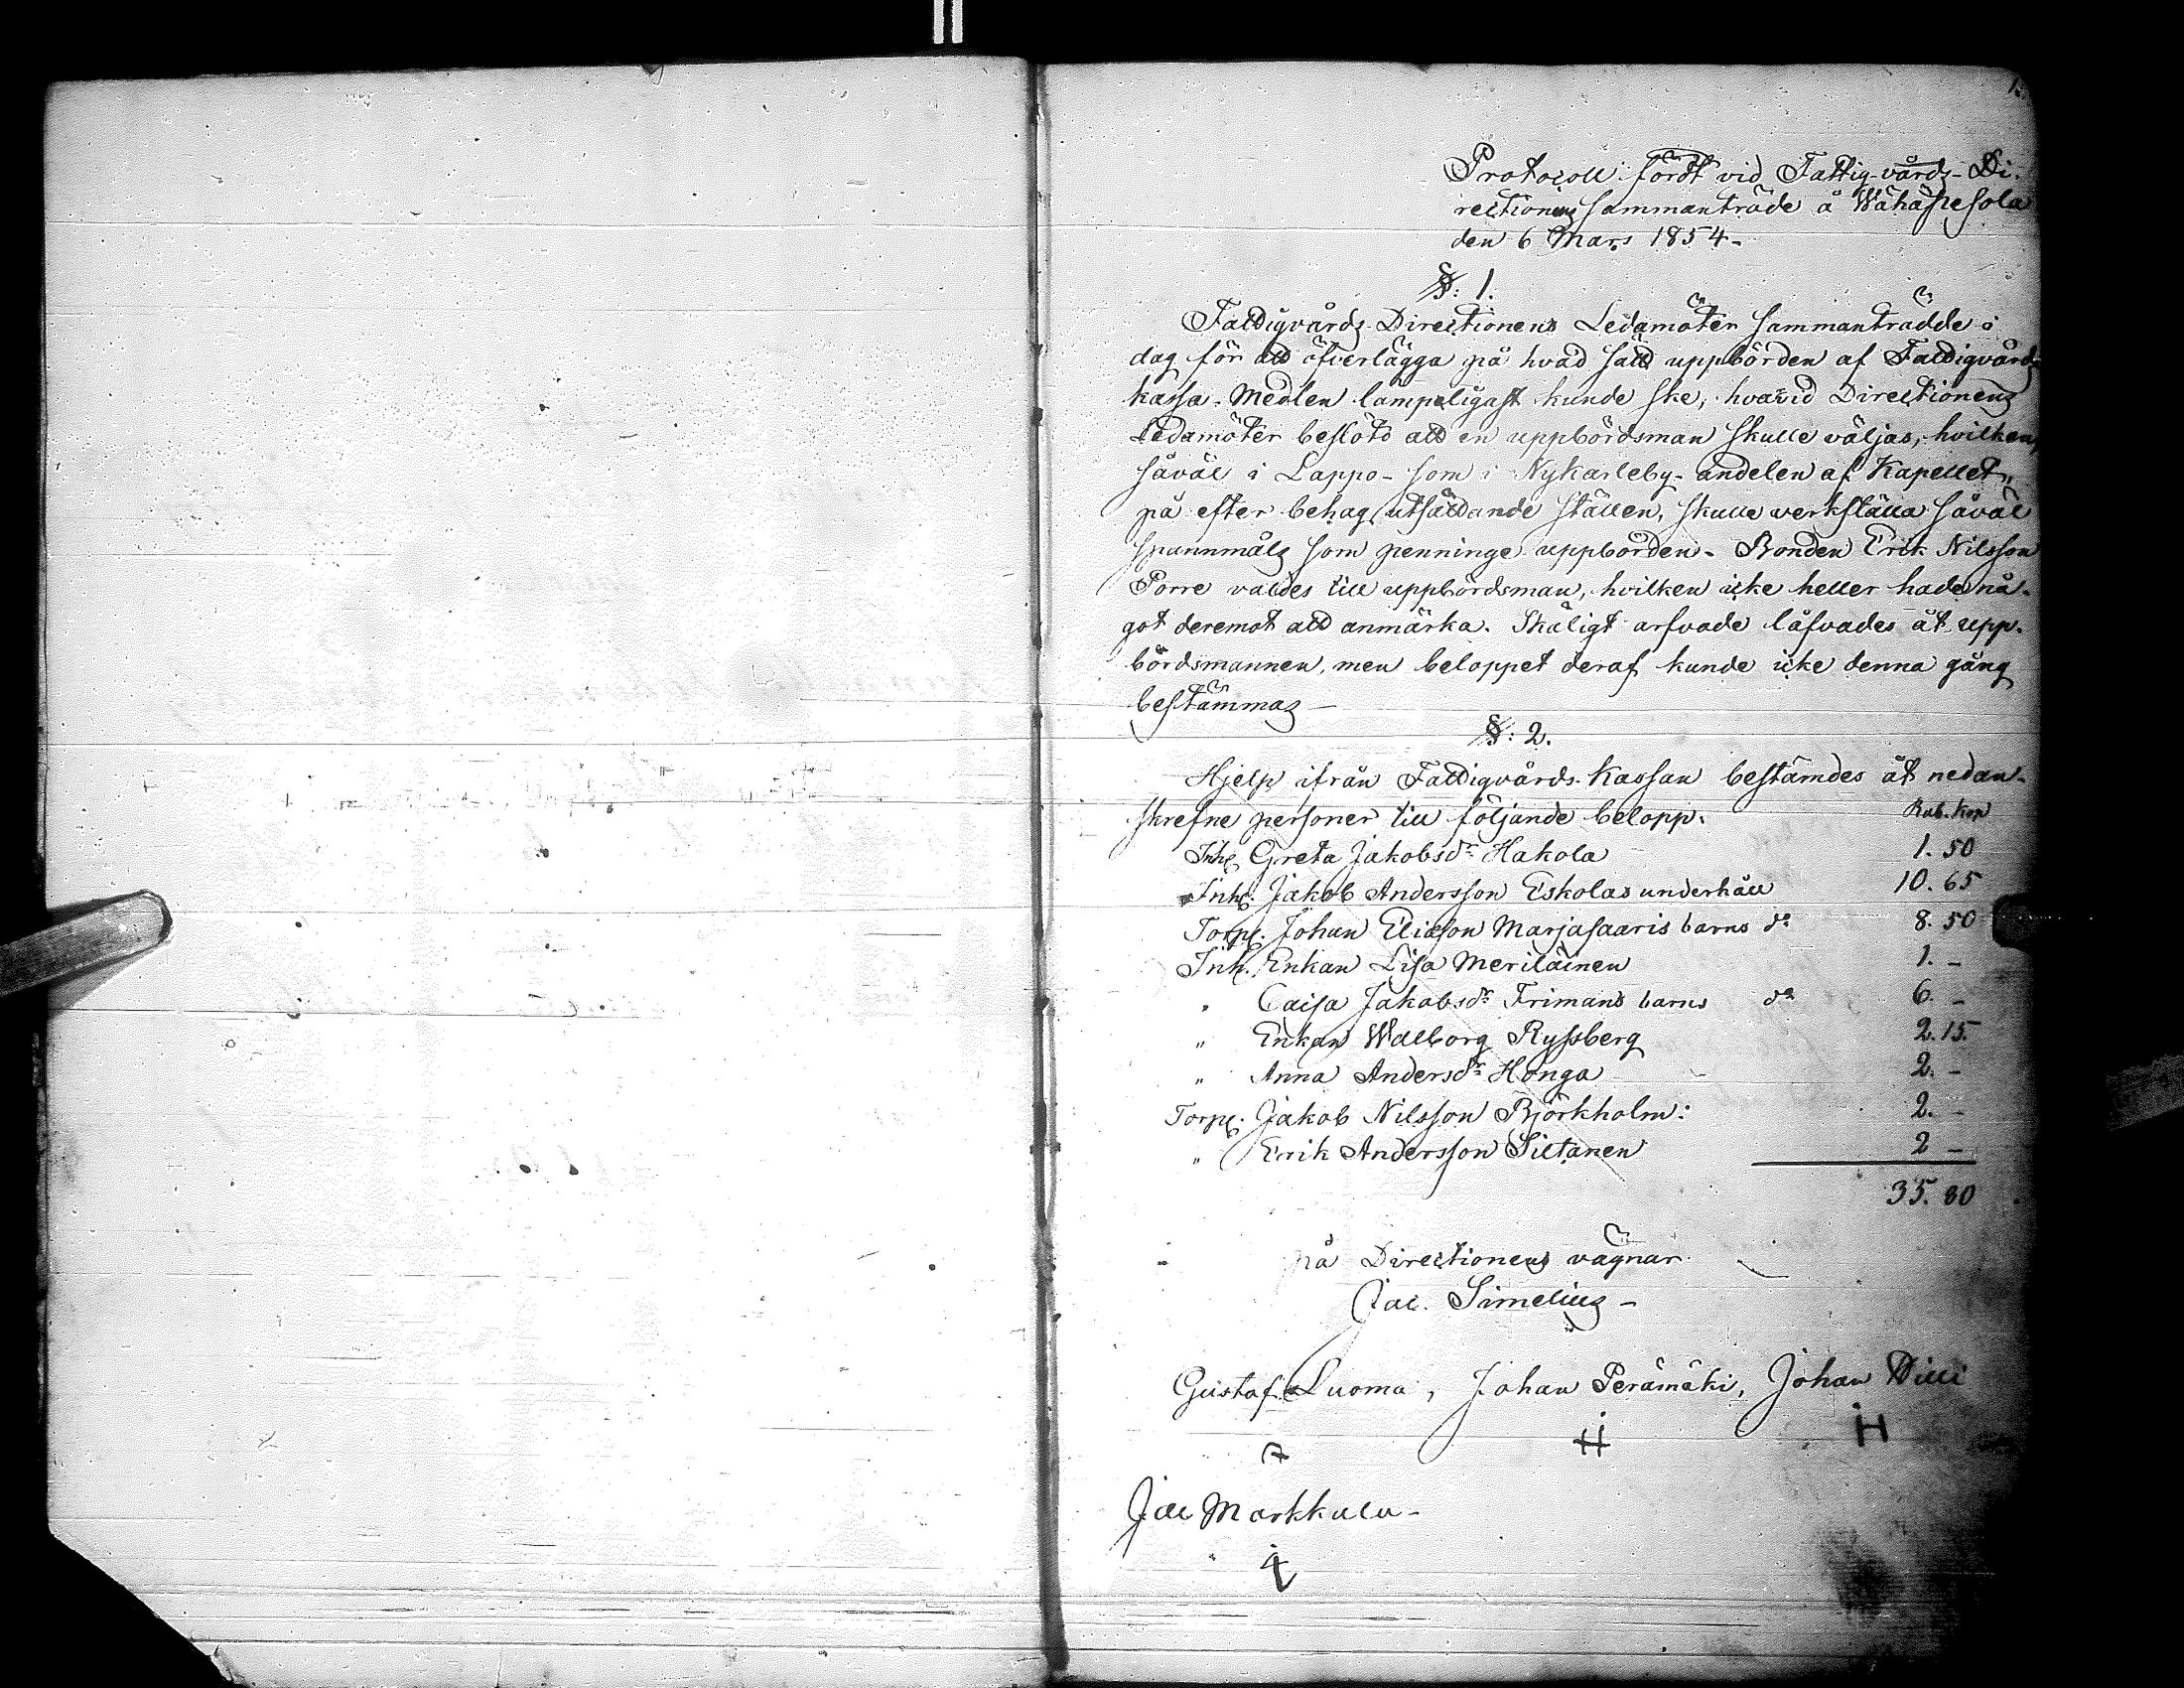 1.
Protocoll fördt vid Fattig-vårds-Di-
rectionens sammanträde å Wähäpesola
den 6 Mars 1854-
§: 1.
Fattigvårds Directionens Ledamöter sammanträdde i
dag för att öfverlägga på hvad sätt uppbörden af Fattigvårds
kassa-Medlen lämpeligast kunde ske, hvarvid Directionens
Ledamöter beslöto att en uppbördsman skulle väljas, hvilken,
såväl i Lappo- som i Nykarleby- andelen af Kapellet,
på efter behag utsättande ställen, skulle verkställa såväl
spannmåls som penninge uppbörden- Bonden Erik Nilsson
Porre valdes till uppbördsman, hvilken icke heller hade nå-
got deremot att anmärka. Skäligt arfvode låfvades åt upp-
bördsmannen, men beloppet deraf kunde icke denna gång
bestämmas-
§: 2.
Hjelp ifrån Fattigvårds-Kassan bestämdes åt nedan-
skrefne personer till följande belopp. Rub. Kop
Inh. Greta Jakobsdr Hakola 1. 50
Inh. Jakob Andersson Eskolas underhåll 10. 65
Torp. Johan Eliasson Marjasaaris barns do 8. 50
Inh. Enkan Lisa Meriläinen 1. -
" Caisa Jakobsdr Frimans barns do 6. -
" Enkan Walborg Ryssberg 2. 15.
" Anna Andersdr Honga 2. -
Torp: Jakob Nilsson Björkholm: 2. -
" Erik Andersson Siltanen 2 -
35. 80
på Directionens vägnar
Jac. Simelius-
Gustaf Luoma, Johan Perämäki, Johan Willi
Jac Markkula-